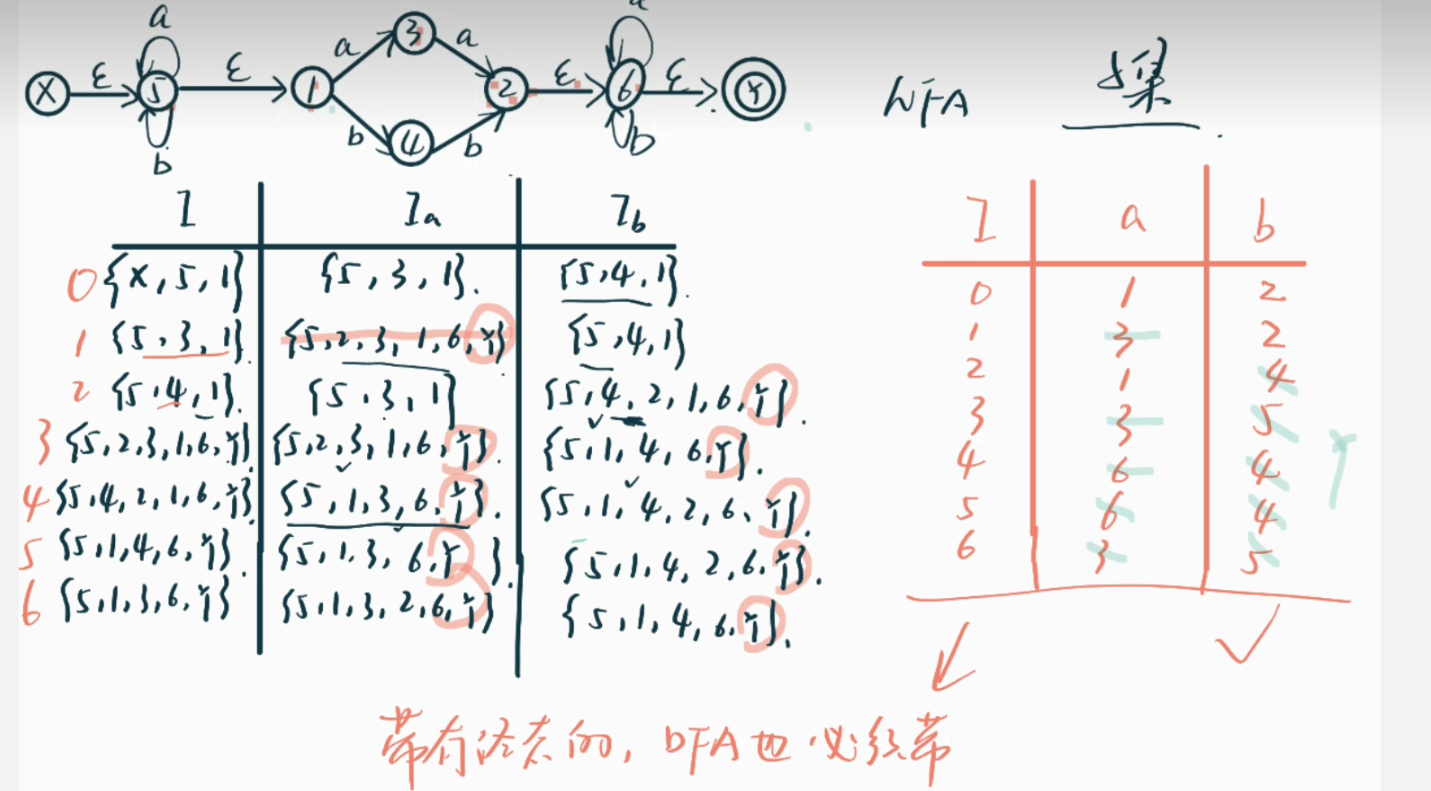 a a
ε ε a 3 a ε ε
X 5 1 2 6 Y NFA 子集
b b 4 b b
I Ia Ib
I a b
0 {X,5,1} {5,3,1}. {5,4,1}.
0 1 2
1 {5,3,1}. {5,2,3,1,6,Y} {5,4,1}
1 3 2
2 {5,4,1}. {5,3,1} {5,4,2,1,6,Y}.
2 1 4
3 {5,2,3,1,6,Y} {5,2,3,1,6,Y}. {5,1,4,6,Y}.
3 3 5
4 {5,4,2,1,6,Y} {5,1,3,6,Y}. {5,1,4,2,6,Y}.
4 6 4
5 {5,1,4,6,Y}. {5,1,3,6,Y}. {5,1,4,2,6,Y}.
5 6 4
6 {5,1,3,6,Y} {5,1,3,2,6,Y} {5,1,4,6,Y}.
6 3 5
带有终态的, DFA也必须带